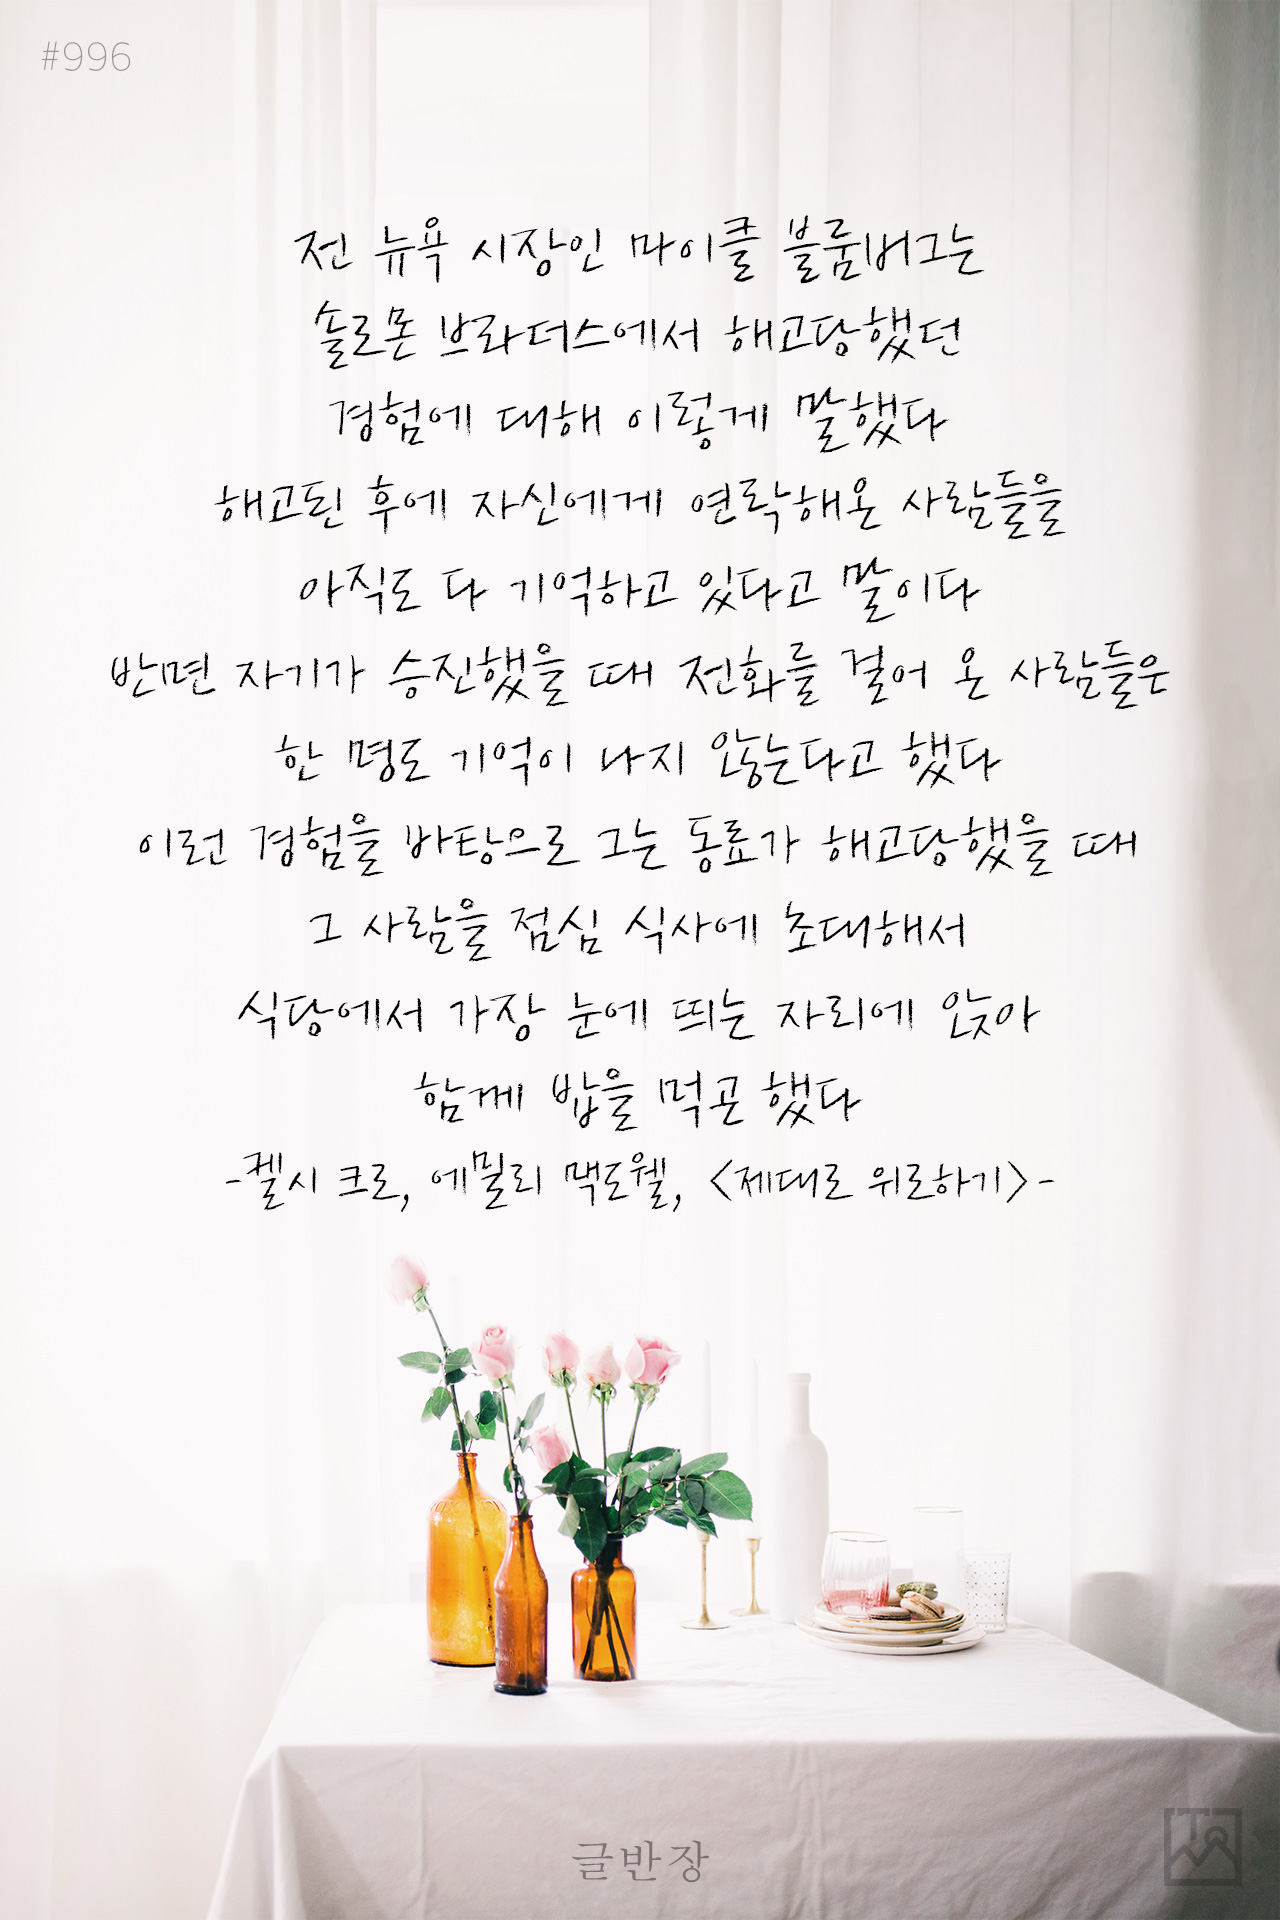 #996
전 뉴욕 시장인 마이클 블룸버그는
솔로몬 브라더스에서 해고당했던
경험에 대해 이렇게 말했다
해고된 후에 자신에게 연락해온 사람들을
아직도 다 기억하고 있다고 말이다
반면 자기가 승진했을 때 전화를 걸어 온 사람들은
한 명도 기억이 나지 않는다고 했다
이런 경험을 바탕으로 그는 동료가 해고당했을 때
그 사람을 점심 식사에 초대해서
식당에서 가장 눈에 띄는 자리에 앉아
함께 밥을 먹곤 했다
-켈시 크로, 에밀리 맥도웰, <제대로 위로하기>-
글반장